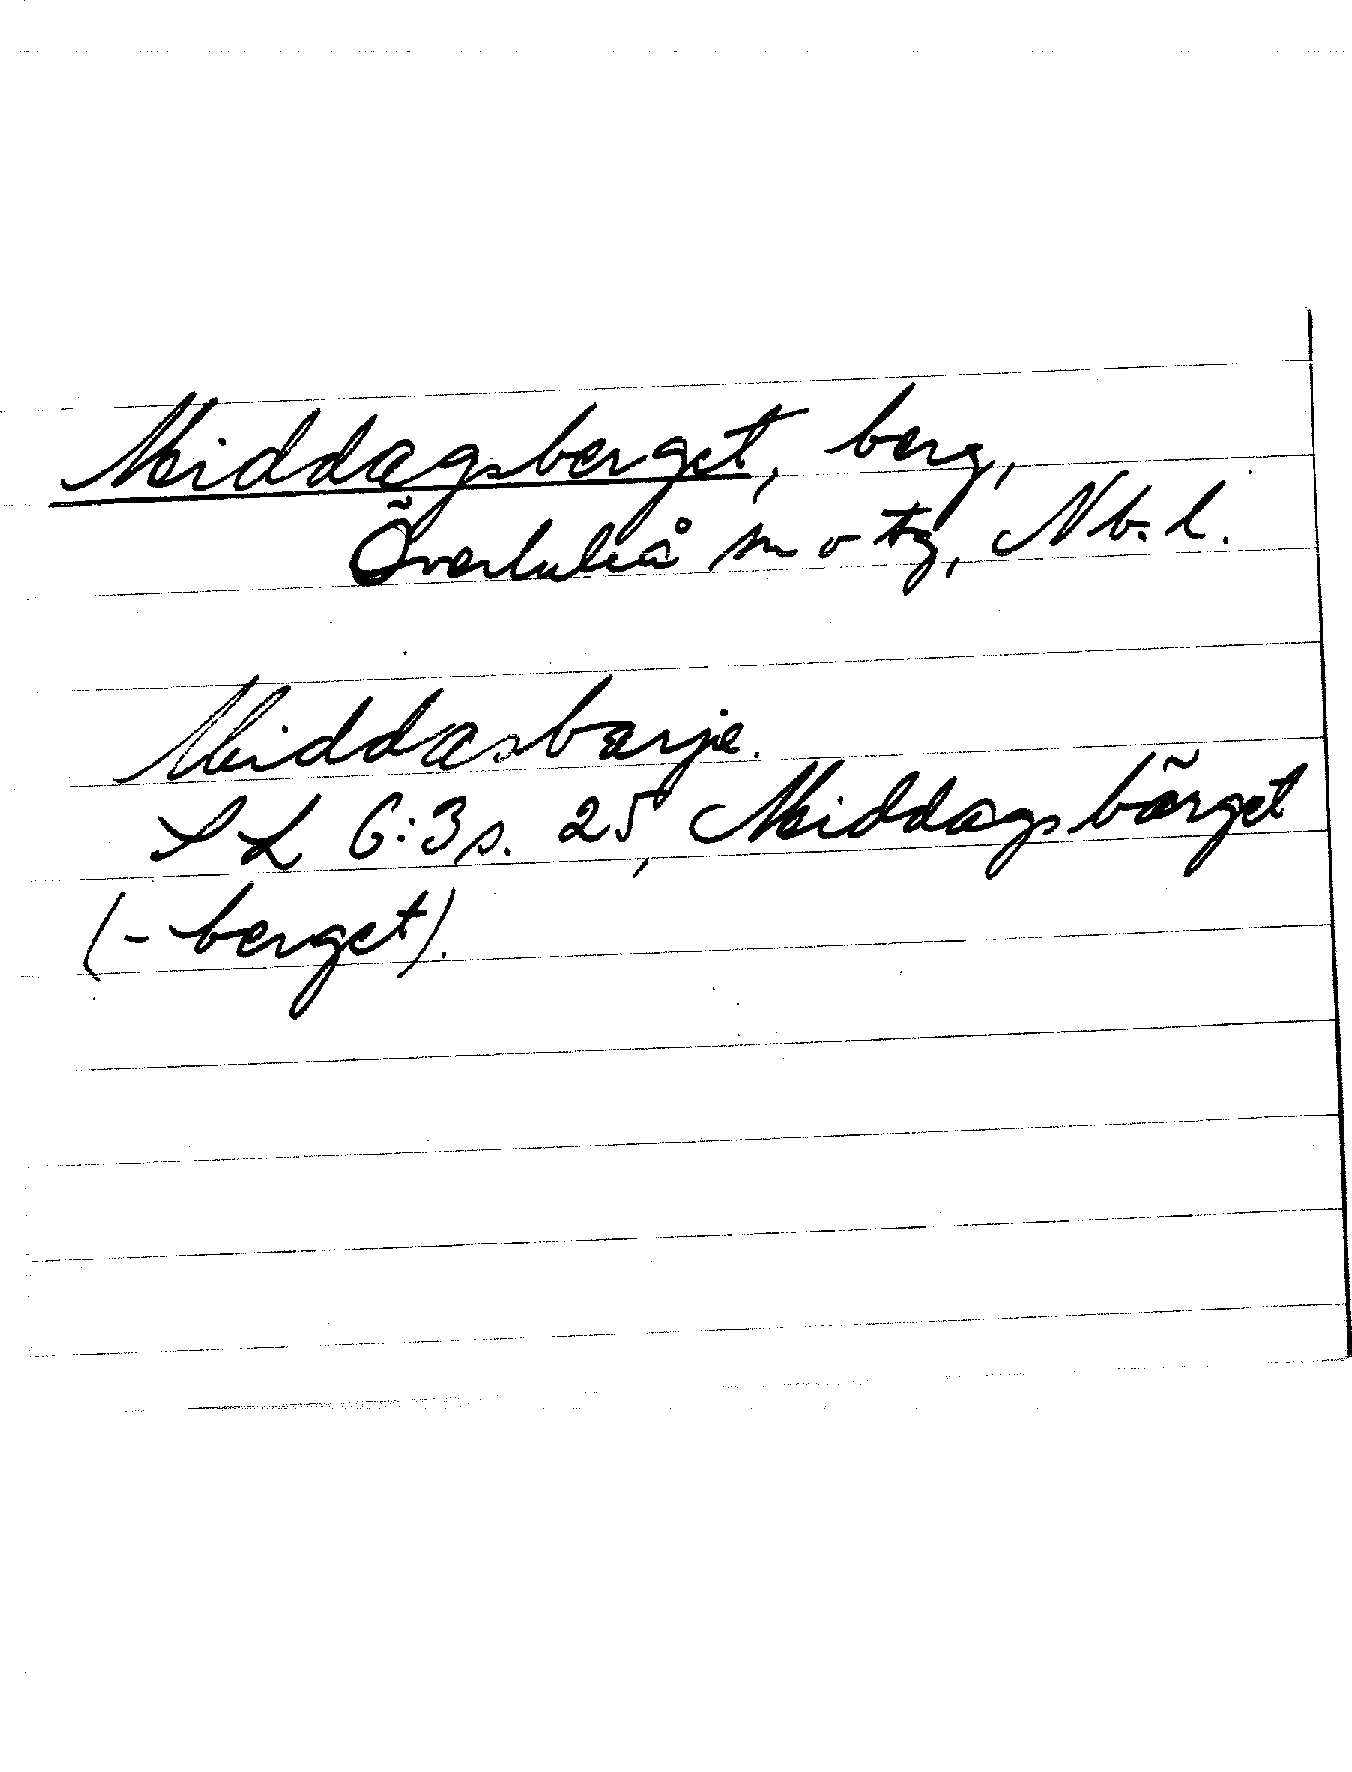 Middagsberget, berg,
Överluleå sn o tg, Nb. l.
Middasbarje.
SL 6:3 s. 25, Middagsbärget
(-berget).